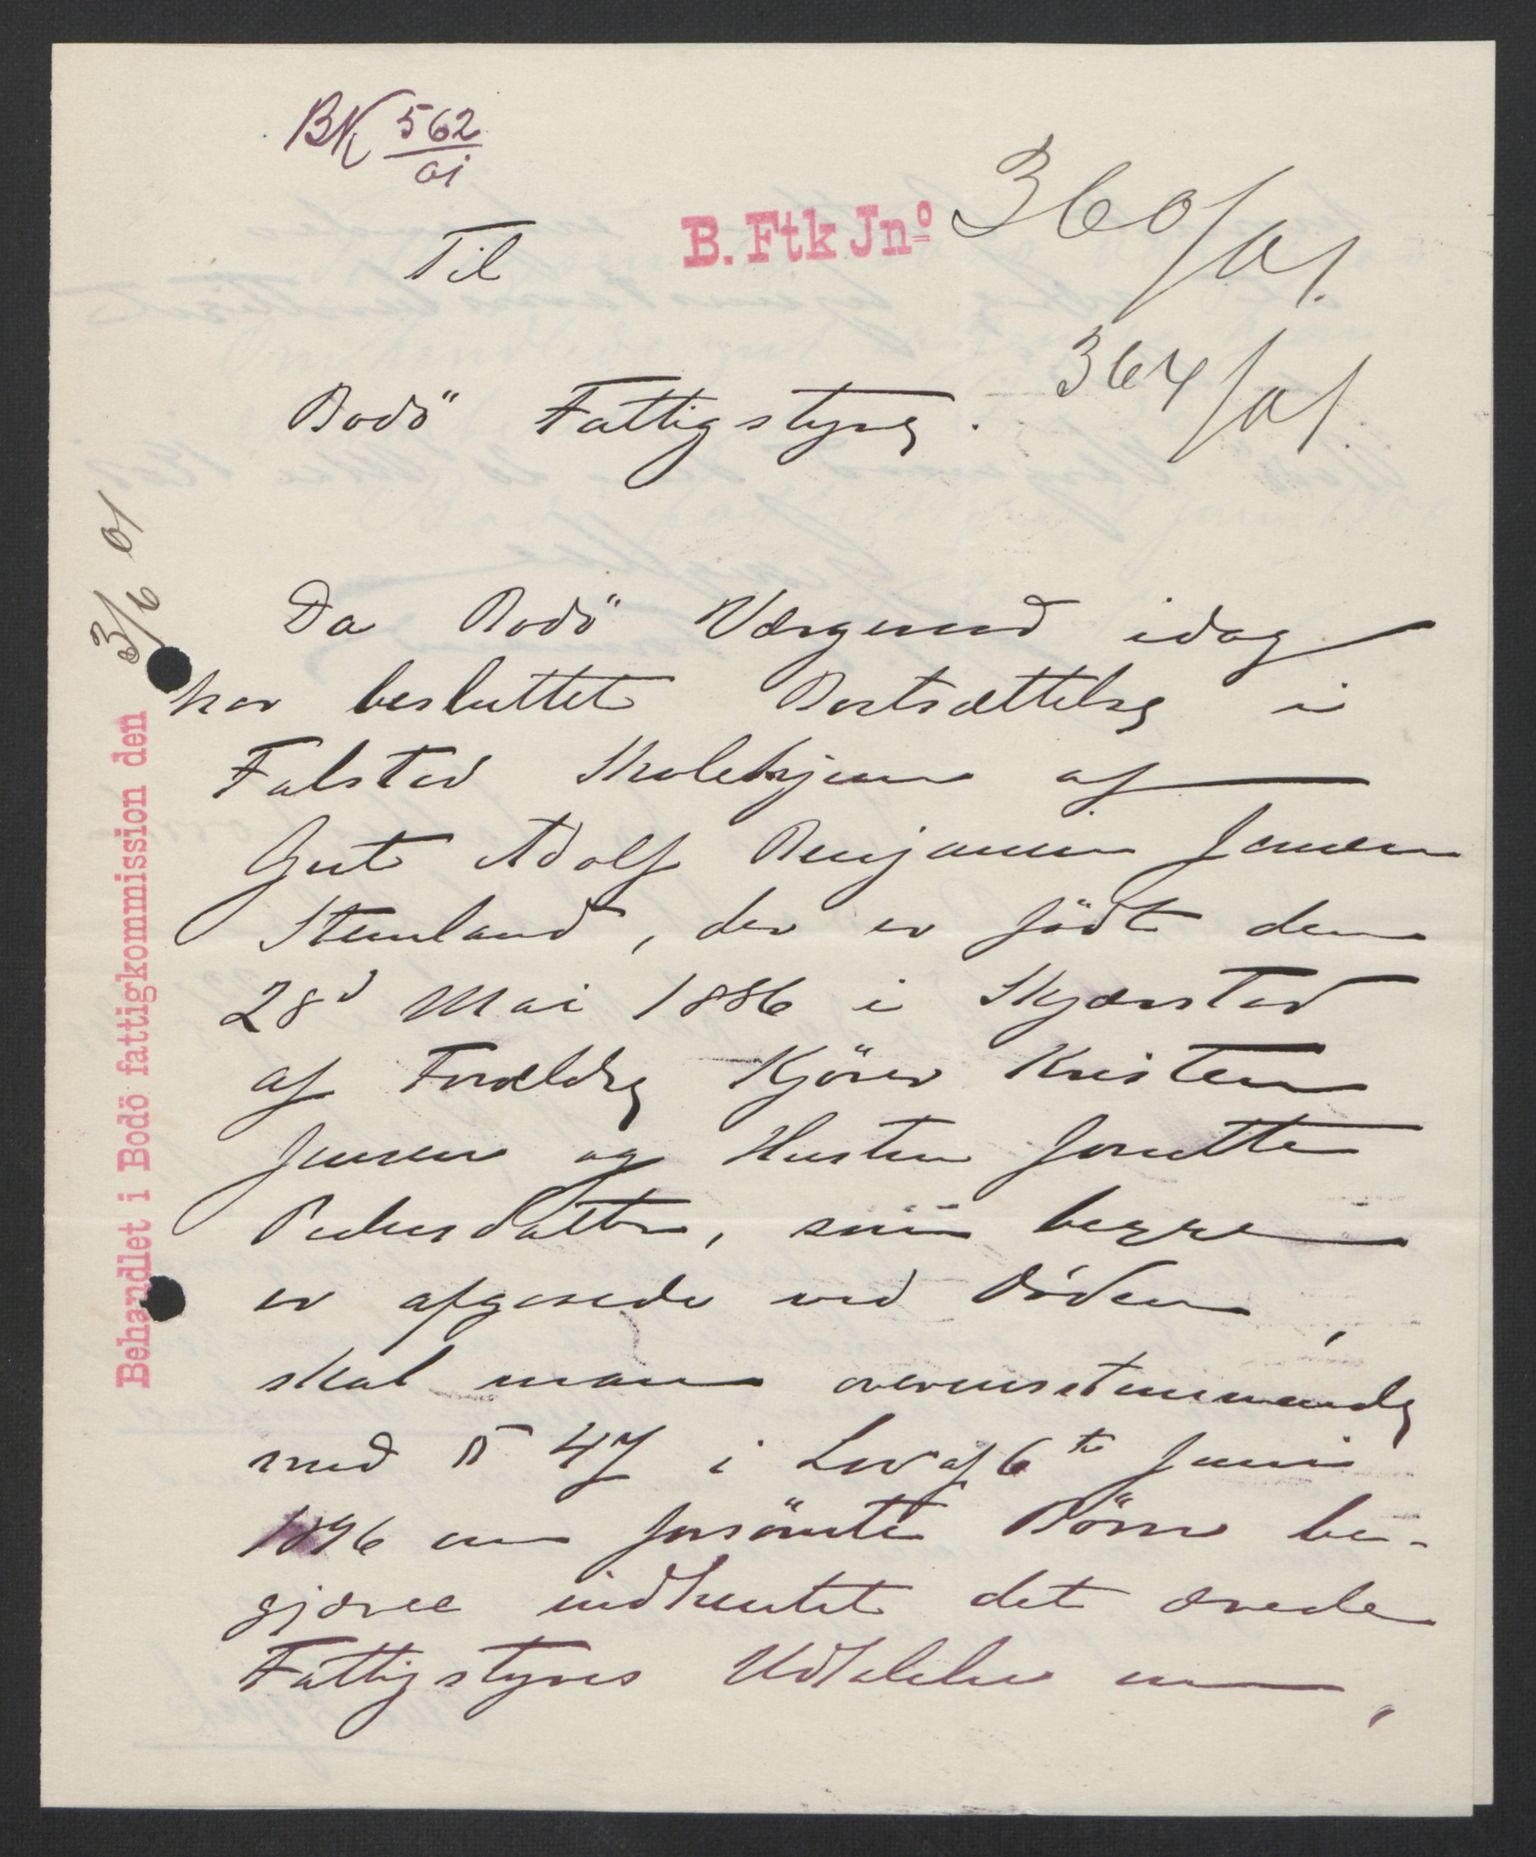 BK 562/01
Til
B. Ftk Jnº 360/01.
364/01.
Bodö Fattigstyre.
Behandlet i Bodö fattigkommission den 3/6 01
Da Bodö Værgeraad idag
har besluttet Bortsættelse i
Falstad Skolehjem af
Gut Adolf Benjamin Jensen
Stemland, der er födt den
28d Mai 1886 i Skjærstad
af Forældre Kjörer Kristen
Jensen og Hustru Jonette
Pedersdatter, som begge
er afgaaede ved Döden,
skal man overensstemmende
med § 47 i Lov af 6te Juni
1896 om forsömte Börn be-
gjære indhentet det ærede
Fattigstyres Udtalelse om,